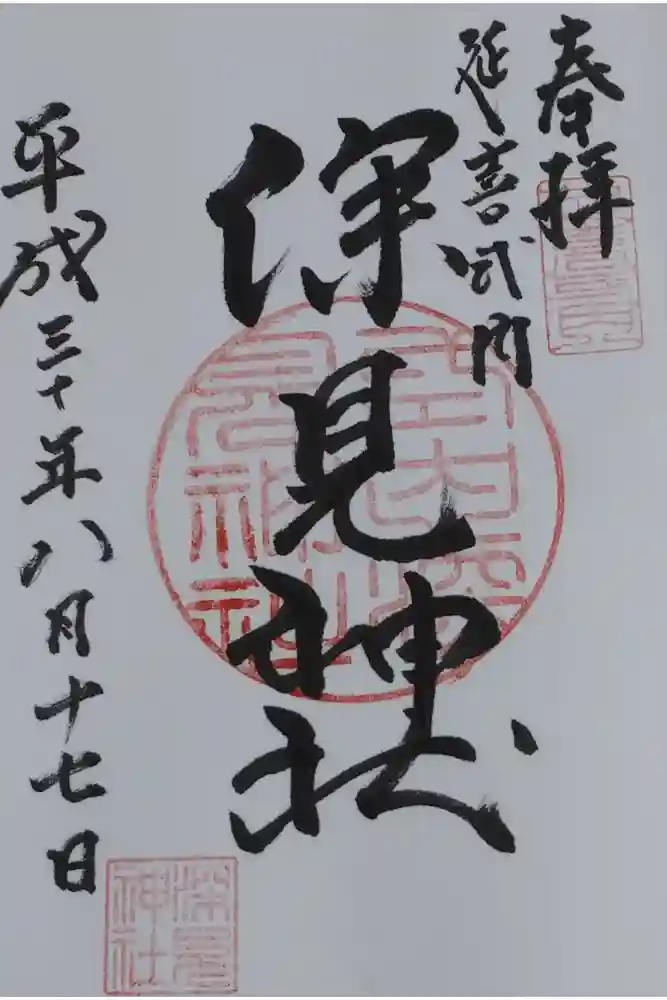 奉拝
延喜式内
深見神社
平成三十年八月十七日
深見
神社